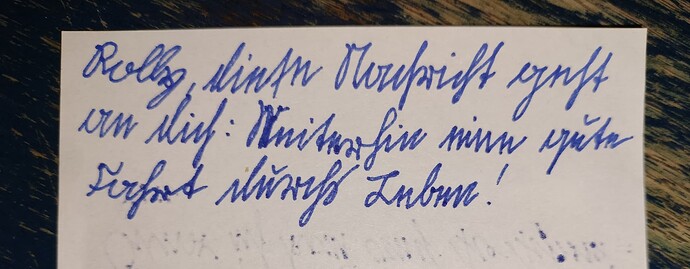 Rolly, diese Nachricht geht
an dich: Weiterhin eine gute
Fahrt durchs Leben!